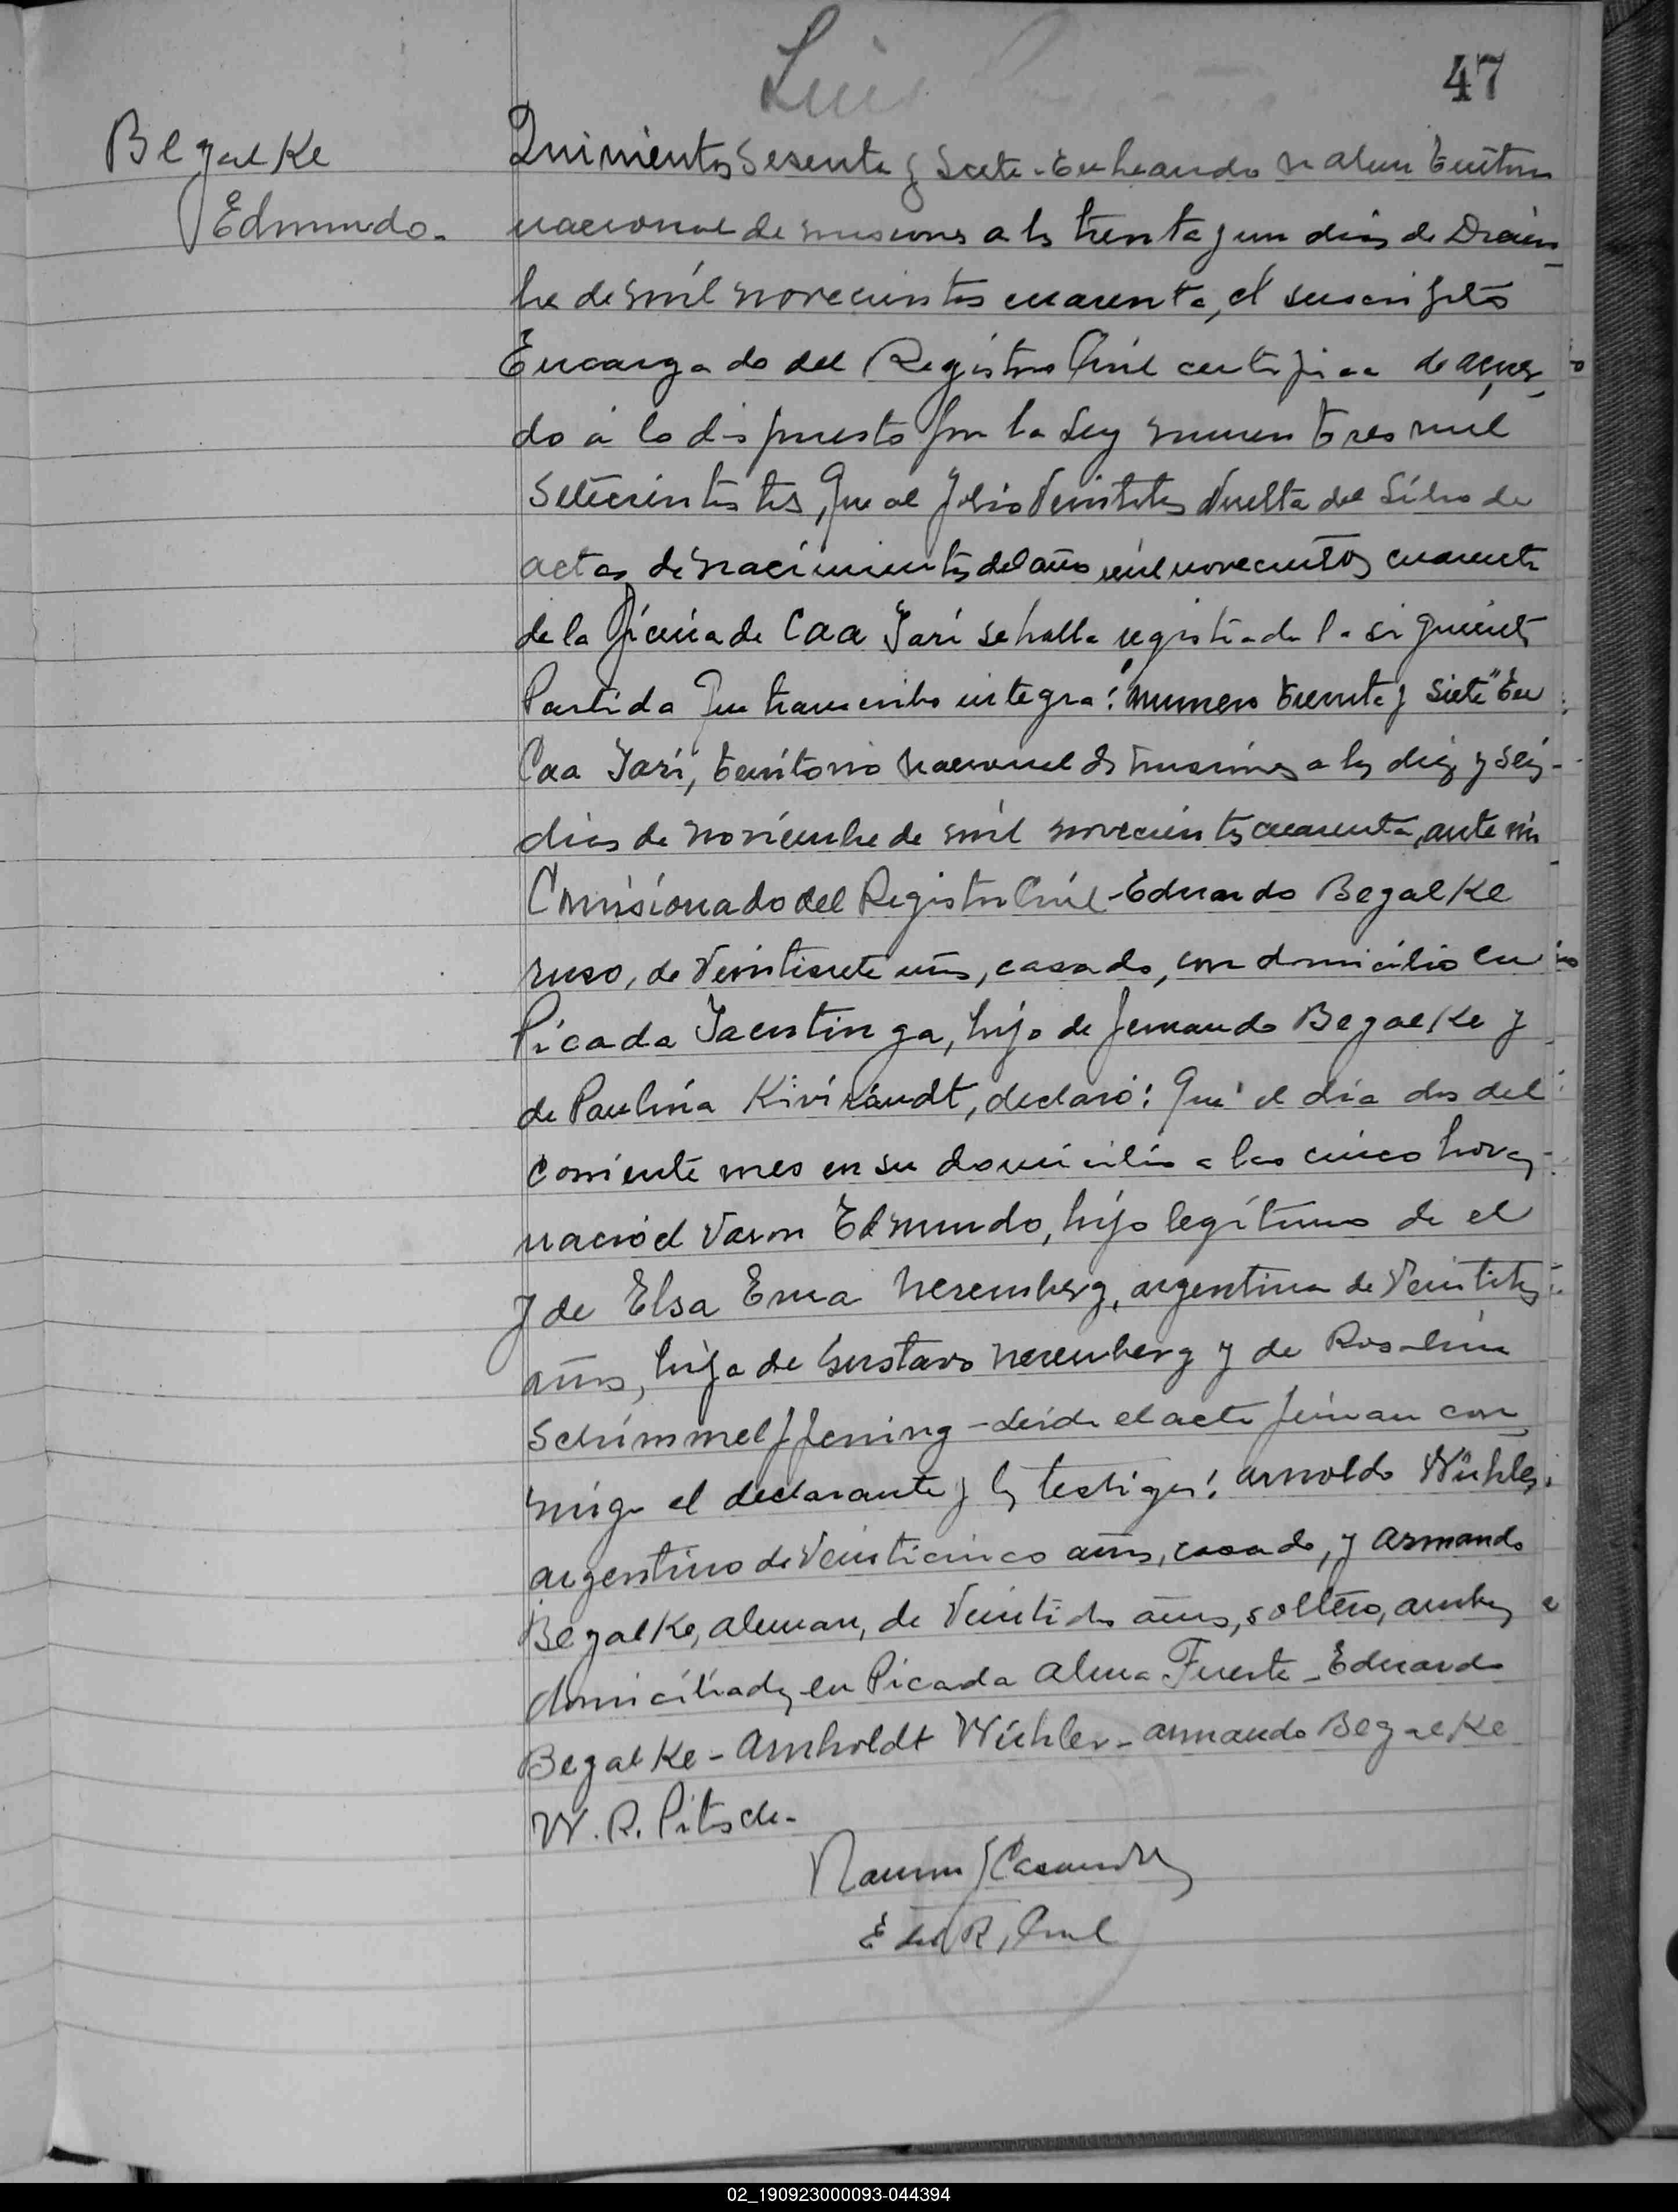 Luis
47
Begalke
Edmundo.
Quinientos Sesenta y Siete. En Leandro N Alem Territorio
nacional de misiones a los treinta y un dias de Diciem
bre de mil novecientos cuarenta, el suscripto
Encargado del Registro Civil certifica de acuer
do a lo dispuesto por la Ley numero tres mil
Setecientos tres, Que al folio Veintitres Vuelta del Libro de
actas de nacimientos del año mil novecientos cuarenta
de la Oficina de Caa Yarí se halla registrada la siguiente
Partida Que transcribo integra: "numero treinta y siete" En
Caa Yarí, territorio nacional de misiones a los diez y seis
dias de noviembre de mil novecientos cuarenta, ante mi
Comisionado del Registro Civil - Eduardo Begalke
ruso, de Veintisiete años, casado, con domicilio en
Picada Yacutinga, hijo de Fernando Begalke y
de Paulina, declaró: Que el día dos del
corriente mes en su domicilio a las cinco horas
nació el Varon Edmundo, hijo legítimo de el
y de Elsa Erna Neremberg, argentina de Veintitres
años, hija de Gustavo Neremberg y de Rosalina
Schimmelffening - Leida el acta firman con
migo el declarante y los testigos: Arnoldo Wühler
argentino de Veinticinco años, casado, y Armando
Begalke, aleman, de Veintidos años, soltero, ambos
domiciliados en Picada Alma Fuerte - Eduardo
Begalke - Arnholdt Wühler - Armando Begalke
W. R. Pitsch.
E del R, Civil
02_190923000093-044394